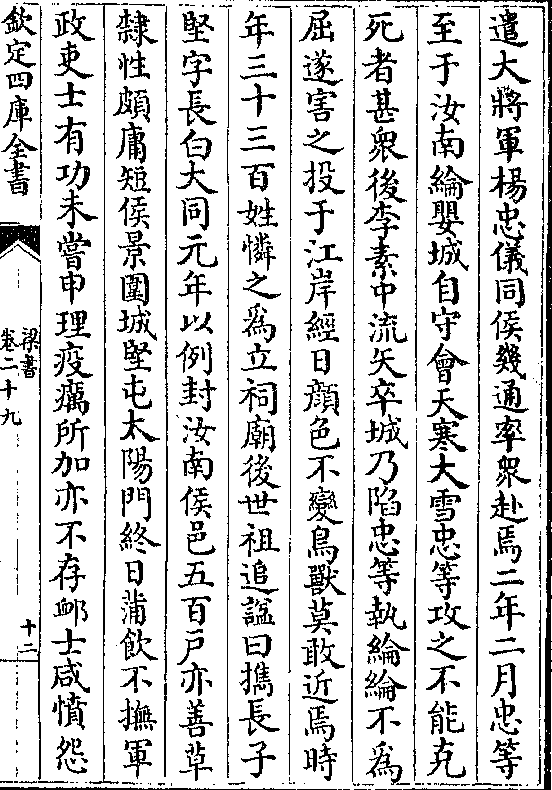 遣大將軍楊忠儀同侯幾通率衆赴焉二年二月忠等
至于汝南綸嬰城自守會天寒大雪忠等攻之不能克
死者甚衆後李素中流矢卒城乃陷忠等執綸綸不為
屈遂害之投于江岸經日顔色不變鳥獸莫敢近焉時
年三十三百姓憐之為立祠廟後世祖追諡曰攜長子
堅字長白大同元年以例封汝南侯邑五百戸亦善草
隸性頗庸短侯景圍城堅屯太陽門終日蒲飲不撫軍
政吏士有功未嘗申理疫癘所加亦不存䘏士咸憤怨
欽定四庫全書
梁書
卷二十九
十二